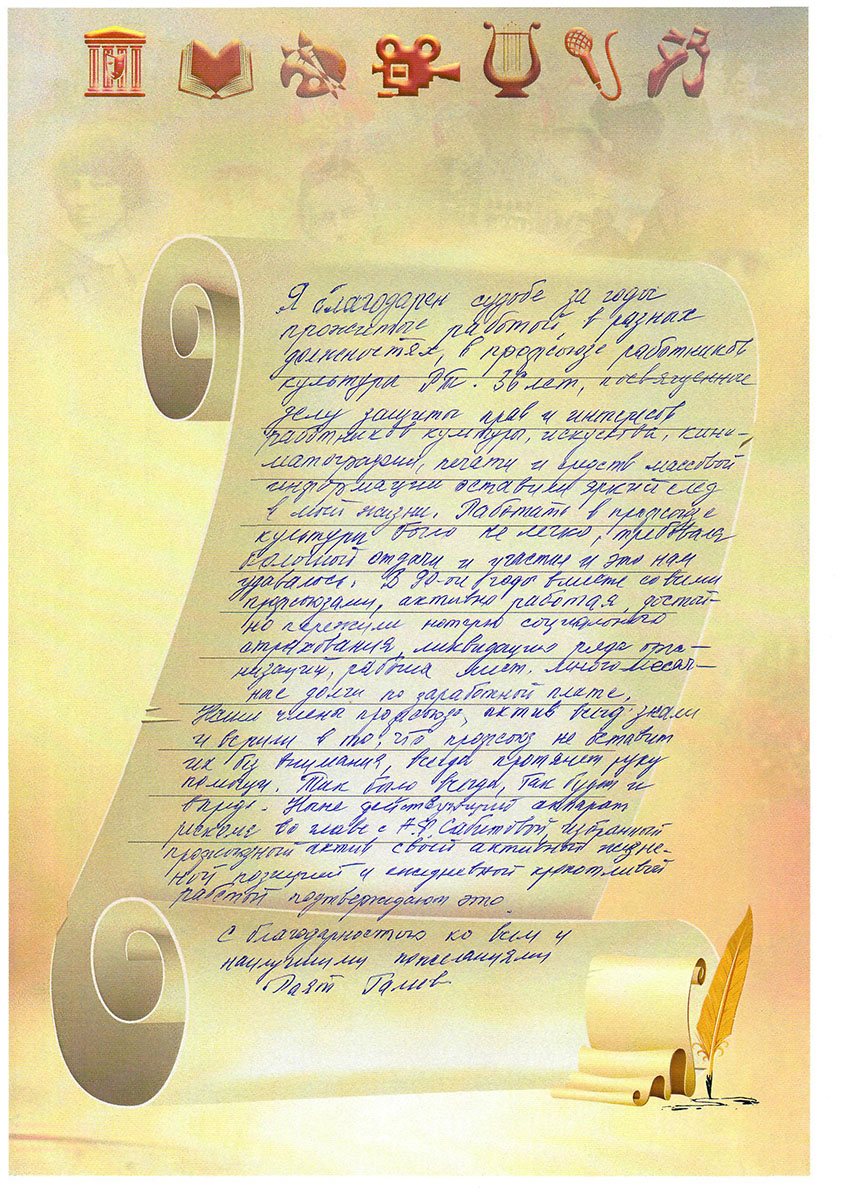 Я благодарен судьбе за годы
прожитые работой, в разных
должностях, в профсоюзе работников
культуры РТ. 36 лет, посвященные
делу защиты прав и интересов
работников культуры, искусства, кине-
матографии, печати и средств массовой
информации оставили яркий след
в моей жизни. Работать в профсоюзе
культуры было не легко, требовался
большой отдачи и участия и это нам
удавалось. В 90-ые годы вместе со всеми
профсоюзами, активно работая, достой-
но пережили потерю социального
страхования, ликвидацию ряда орга-
низаций, рабочих мест, многомесяч-
ные долги по заработной плате.
Наши члены профсоюза, актив всегда знали
и верили в то, что профсоюз не оставит
их без внимания, всегда протянет руку
помощи. Так было всегда, так будет и
впредь. Ныне действующий аппарат
рескома во главе с А.Ф. Сабитовой, избранный
профсоюзный актив своей активной жизне-
ной позицией и ежедневной кропотливой
работой подтверждают это.
С благодарностью ко всем и
наилучшими пожеланиями
Галиев